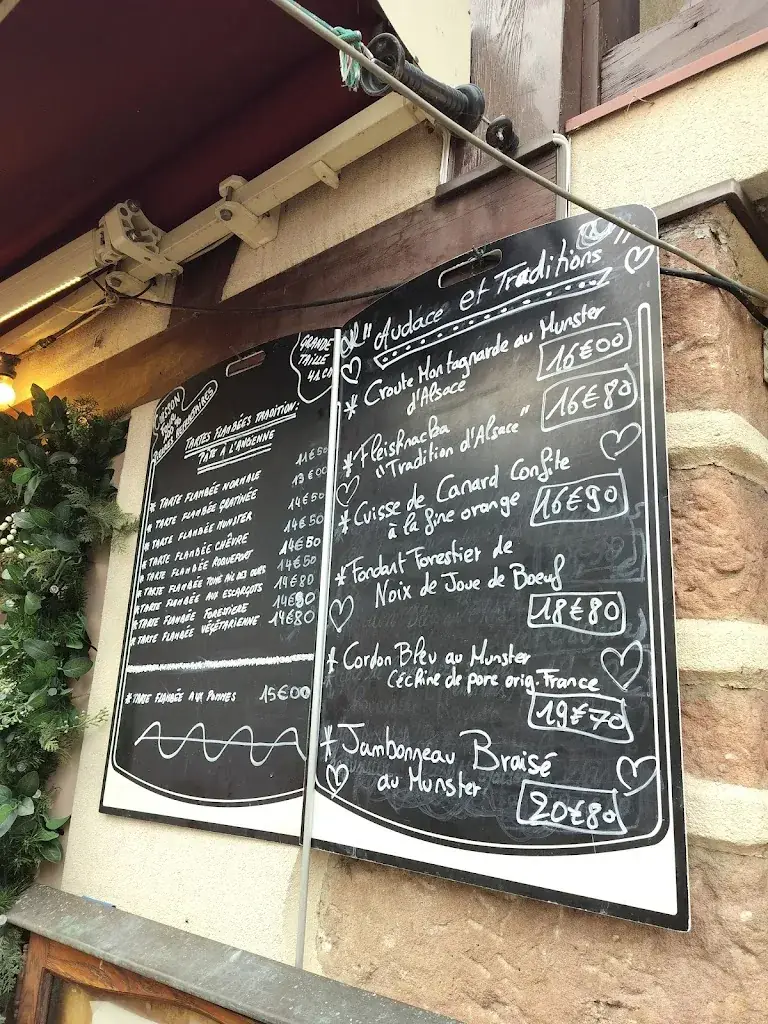 GRANDE
TAILLE
TARTES FLAMBÉES TRADITION:
PATE A L'ANCIENNE
* TARTE FLAMBÉE NORMALE 11€50
* TARTE FLAMBÉE GRATINÉE 13€00
* TARTE FLAMBÉE MUNSTER 14€50
* TARTE FLAMBÉE CHÈVRE 14€50
* TARTE FLAMBÉE ROQUEFORT 14€50
* TARTE FLAMBÉE TOME AIL DES OURS 14€50
* TARTE FLAMBÉE AUX ESCARGOTS 14€80
* TARTE FLAMBÉE FORESTIÈRE 14€90
* TARTE FLAMBÉE VÉGÉTARIENNE 14€80
* TARTE FLAMBÉE AUX POMMES 15€00
" Audace et Traditions "
* Croute Montagnarde au Munster
d'Alsace
16€00
* Fleishnacka
"Tradition d'Alsace"
16€80
* Cuisse de Canard Confite
à la fine orange
16€90
* Fondant Forestier de
Noix de Joue de Boeuf
18€80
* Cordon Bleu au Munster
(échine de porc orig. France
19€70
* Jambonneau Braisé
au Munster
20€80